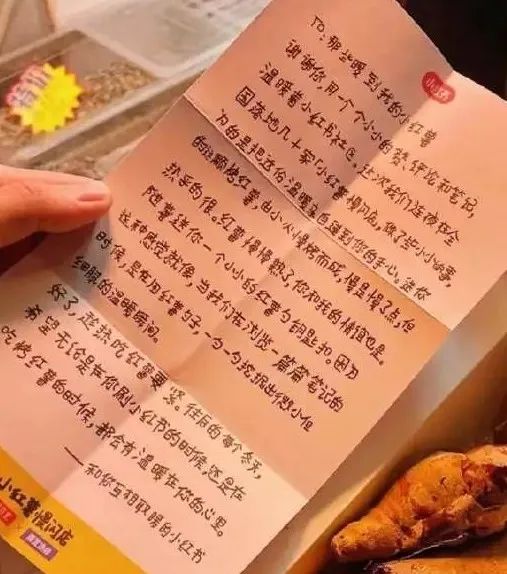 特价
小红书
TO: 那些暖到我的小红薯
谢谢你，用一个个小小的赞、评论和笔记，
温暖着小红书社区。这次我们连夜在全
国落地几十家「小红薯慢闪店」，做了些小小的事，
为的是把这份温暖，递到你的手心。送你
的这颗烤红薯，由小火慢烤而成，慢是慢了点，但
热乎的很。红薯慢慢熟了，你和我的情谊也是。
随薯送你一个小小的红薯勺钥匙扣。因为
这种感觉就像，当我们在浏览一篇篇笔记的
时候，是在用红薯勺子，一勺一勺挖掘出微小但
细腻的温暖瞬间。
好了，趁热吃红薯吧。往后的每个冬天，
无论是在你刷小红书的时候，还是在
吃烤红薯的时候，都会有温暖在你的心里。
——和你互相取暖的小红书
小红薯慢闪店